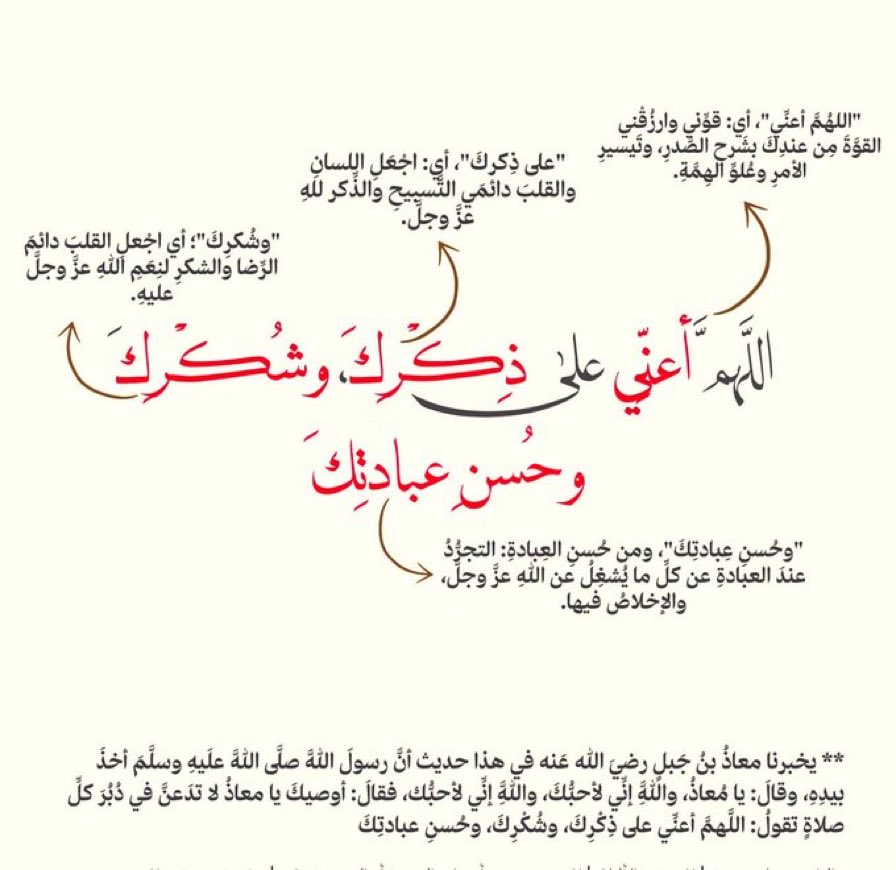 "اللهُمَّ أعنِّي"، أي: قوِّني وارزُقْني
القوَّةَ مِن عندِكَ بشَرحِ الصَّدرِ، وتَيسيرِ
الأمرِ وعُلوِّ الهِمَّةِ.
"على ذِكركَ"، أي: اجْعَلِ اللسانِ
والقلبَ دائمَي التَّسبيحِ والذِّكر للهِ
عزَّ وجلَّ.
"وشُكرِكَ"؛ أي اجْعلِ القلبَ دائمَ
الرِّضا والشكرِ لنِعَمِ اللهِ عزَّ وجلَّ
عليهِ.
اللَّهمَّ أعنّي على ذِكْرِكَ، وشُكْرِكَ
وحُسنِ عبادتِكَ
"وحُسنِ عِبادتِكَ"، ومن حُسنِ العِبادةِ: التجرُّدُ
عندَ العبادةِ عن كلِّ ما يُشغِلُ عن اللهِ عزَّ وجلَّ،
والإخلاصُ فيها.
** يخبرنا معاذُ بنُ جَبلٍ رضيَ الله عَنه في هذا حديث أنَّ رسولَ اللَّهَ صلَّى اللَّهَ علَيهِ وسلَّمَ أخذَ
بيدِهِ، وقالَ: يا مُعاذُ، واللَّهِ إنِّي لأحبُّكَ، واللَّهِ إنِّي لأحبُّك، فقالَ: أوصيكَ يا معاذُ لا تدَعنَّ في دُبُرَ كلِّ
صلاةٍ تقولُ: اللَّهمَّ أعنِّي على ذِكْرِكَ، وشُكْرِكَ، وحُسنِ عبادتِكَ